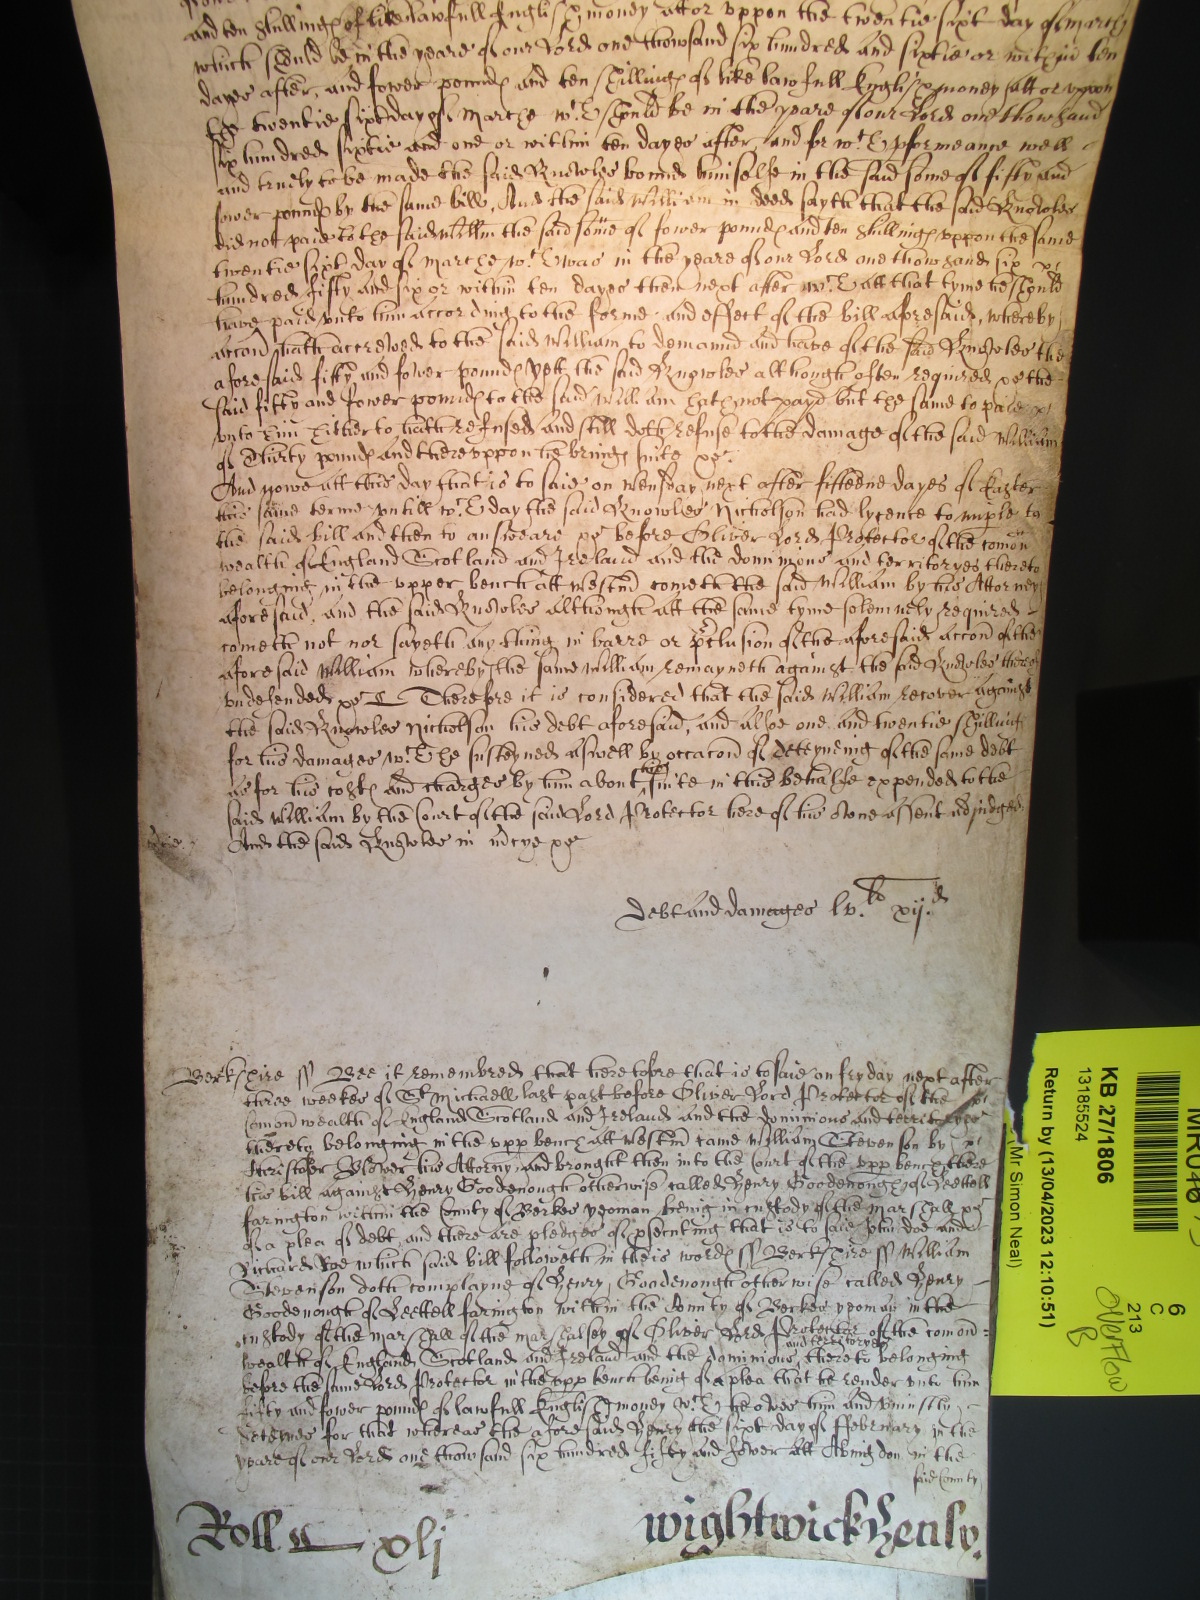 and ten shillings of like lawfull English money att or uppon the twentie sixt day of March
which should be in the yeare of our Lord one thowsand six hundred and sixtie or within ten
dayes after, and fower pounds and ten shillings of like lawfull English money att or uppon
the twentie sixt day of Marche wch should be in the yeare of our Lord one thowsand
six hundred sixtie and one or within ten dayes after, and for wch pformeance well
and truely to be made the said Knowles bound himselfe in the said some of fifty and
fower pounds by the same bill, And the said William in deed sayth that the said Knowles
did not paie to the said Willm the said some of fower pounds and ten shillings uppon the same
twentie sixt day of Marche wch was in the yeare of our Lord one thowsand six
hundred fifty and six or within ten dayes then next after wch att that tyme he should
have paid unto him according to the forme and effect of the bill aforesaid, whereby
accon hath accrewed to the said William to demaund and have of the said Knowles the
aforesaid fifty and fower pounds Yett the said Knowles although often required &c the
said fifty and fower pounds to the said William hath not payd but the same to paie
unto him hitherto hath refused and still doth refuse to the damage of the said William
of Thirty pounds and thereuppon he brings suite &c.
And nowe att this day that is to saie on Wensday next after fifteene dayes of Easter
this same terme untill wch day the said Knowles Nicholson had lycence to imple to
the said bill and then to answeare &c before Oliver Lord Protector of the comon
wealth of England Scotland and Ireland and the dominions and territoryes thereto
belonging in the upper bench att Westm cometh the said William by his Attorney
aforesaid, and the said Knowles although att the same tyme solemnely required
cometh not nor sayeth any thing in barre or pclusion of the aforesaid accon of the
aforesaid William whereby the same William remayneth against the said Knowles thereof
undefended &c Therefore it is considered that the said William recover against
the said Knowles Nicholson his debt aforesaid, and alsoe one and twentie shillings
for his damages wch he susteyned aswell by occacon of deteyneing of the same debt
as for his costs and charges by him about his suite in this behalfe expended to the
said William by the Court of the said Lord Protector here of his owne assent adjudged
And the said Knowles in mcye &c
Debt and damages lv.li xij.d
Berkshire ss Bee it remembred that heretofore that is to saie on fryday next after
three weekes of St Michaell last past before Oliver Lord Protector of the
Comon wealth of England Scotland and Ireland and the dominions and territoryes
thereto belonging in the upp bench att Westm came William Stevenson by
Christofer Blower his Attorny and brought then into the Court of the upp bench there
his bill against Henry Goodenough otherwise called Henry Goodenough of Leettell
farington within the County of Berkes yeoman being in custody of the Marshall &c
of a plea of debt, and there are pledges of psecuting that is to saie John Doe and
Richard Roe which said bill followeth in theis words ss Berkshire ss William
Stevenson doth complayne of Henry Goodenough otherwise called Henry
Goodenough of Leettell farington within the County of Berkes yeoman in the
custody of the Marshall of the Marshalsey of Oliver Lord Protector of the comon
wealth of England Scotland and Ireland and the dominions and territoryes thereto belonging
before the same Lord Protector in the upp bench being of a plea that he render unto him
fifty and fower pounds of lawfull English money wch he owes him and uniustly
deteynes for that whereas the aforesaid Henry the sixt day of ffebruary in the
yeare of our Lord one thowsand six hundred fifty and fower att Abingdon in the
said County
Roll xlj
Wightwick Henly.
KB 27/1806
13185524
Return by (13/04/2023 12:10:51)
(Mr Simon Neal)
6
C
213
Overflow
B